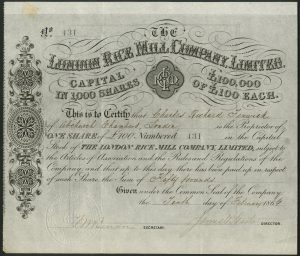 No. 431
THE
LONDON RICE MILL COMPANY, LIMITED.
CAPITAL £100,000
IN 1,000 SHARES OF £100 EACH.
This is to Certify that Charles Richard Fenwick
of Chambers, London is the Proprietor of
ONE SHARE of £100 Numbered 431 in the Capital
Stock of THE LONDON RICE MILL COMPANY, LIMITED, subject to
the Articles of Association and the Rules and Regulations of the
Company, and that up to this day there has been paid up in respect
of such Share the Sum of pounds
Given under the Common Seal of the Company
the Tenth day of February 186
SECRETARY. DIRECTOR.